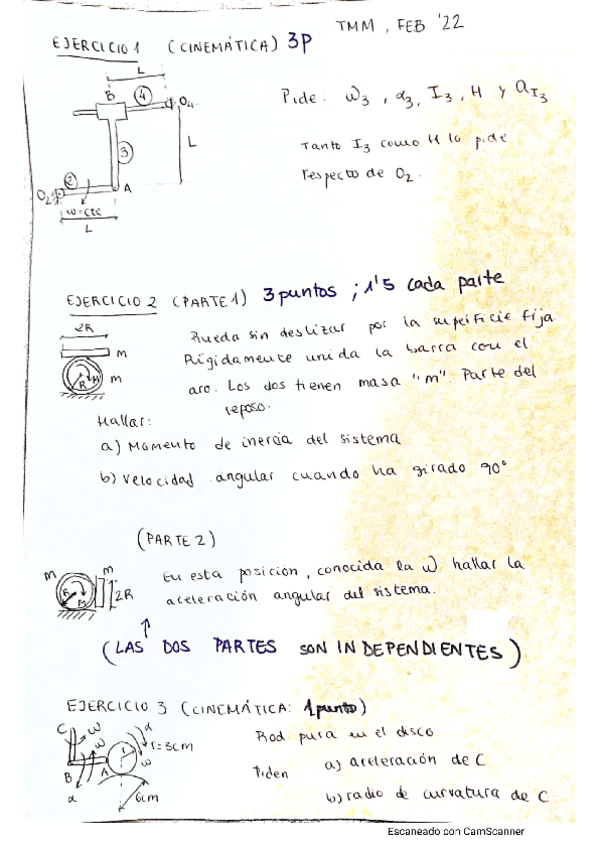 TMM, FEB '22
EJERCICIO 1 (CINEMÁTICA) 3P
L
B
4
O4
Pide: ω3, α3, I3, H y aI3
3
L
Tanto I3 como H lo pide
respecto de O2.
2
O2
A
ω=cte
L
EJERCICIO 2 (PARTE 1) 3 puntos ; 1'5 cada parte
2R
Rueda sin deslizar por la superficie fija.
m
Rígidamente unida la barra con el
R
M
m
aro. Los dos tienen masa "m". Parte del
reposo.
Hallar:
a) Momento de inercia del sistema
b) Velocidad angular cuando ha girado 90°
(PARTE 2)
m
m
En esta posición, conocida la ω hallar la
R
M
2R
aceleración angular del sistema.
(LAS DOS PARTES SON INDEPENDIENTES)
EJERCICIO 3 (CINEMÁTICA: 1 punto)
C
ω
ω
α
r=3cm
Rod. pura en el disco
B
A
ω
Piden a) aceleración de C
α
6cm
b) radio de curvatura de C
Escaneado con CamScanner